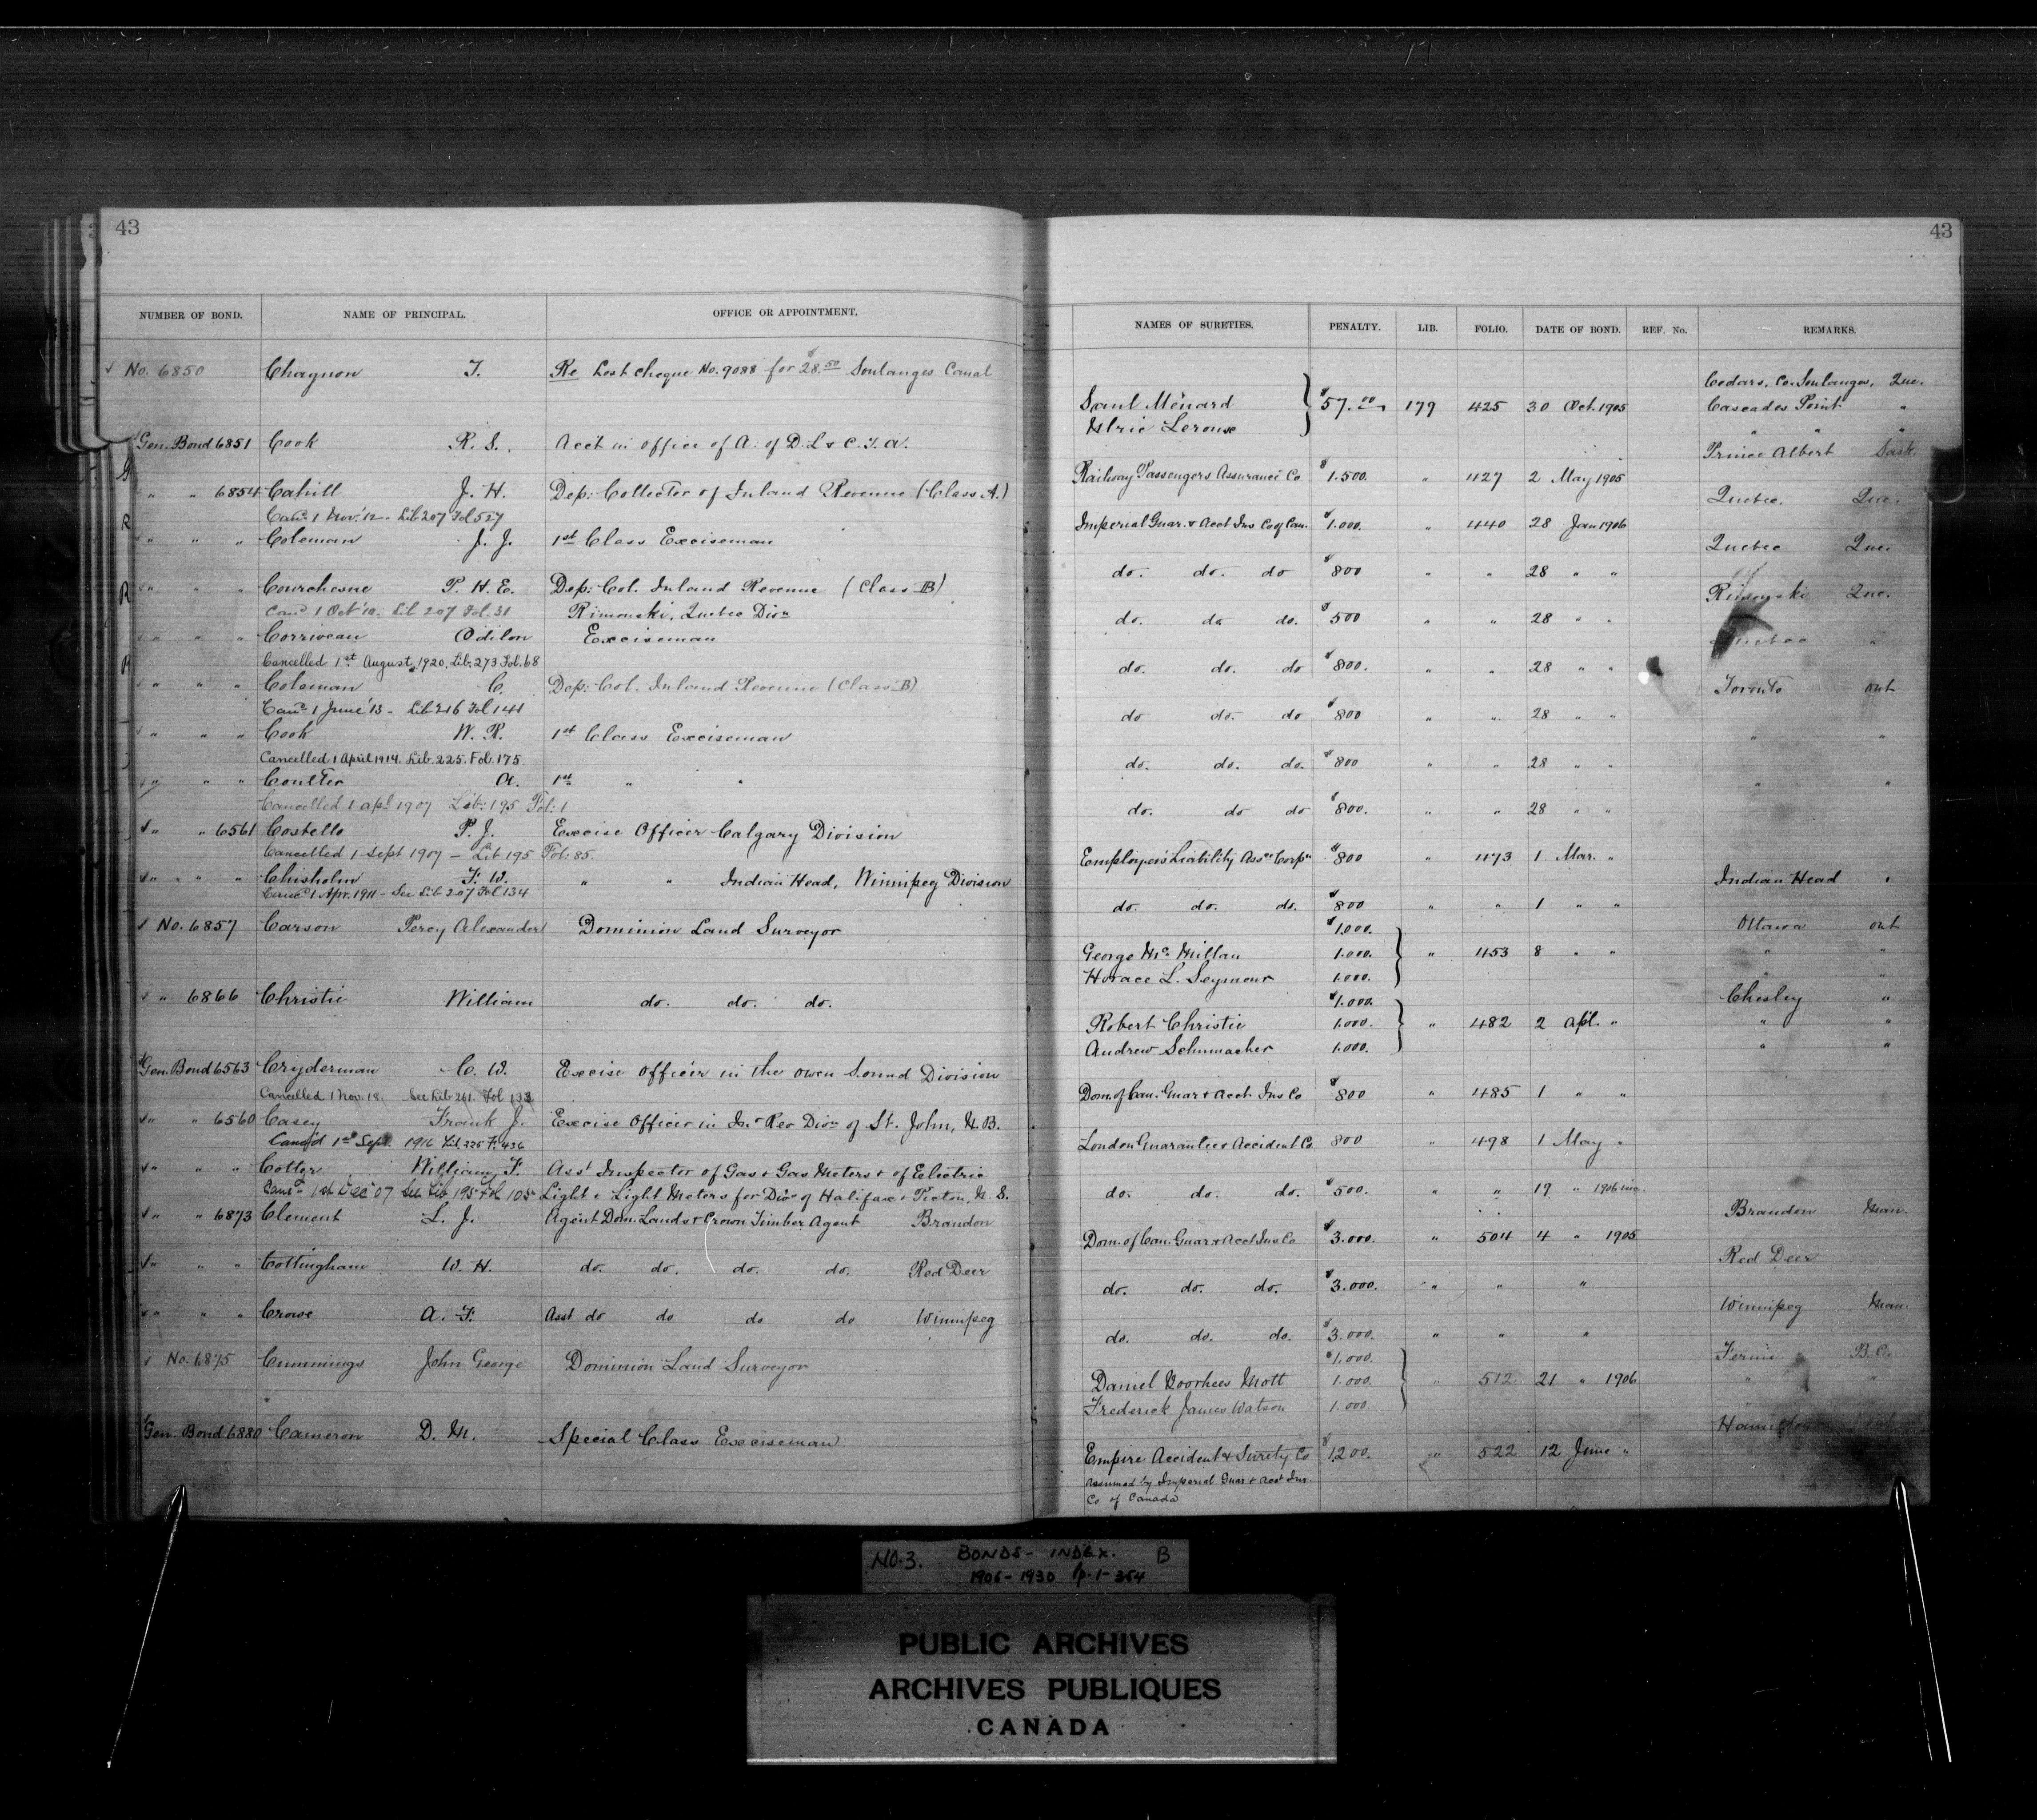 43
NUMBER OF BOND. NAME OF PRINCIPAL. OFFICE OR APPOINTMENT.
No. 6850 Chagnon T. Re Lost cheque No. 9088 for $28.50 Soulanges Canal
Gen. Bond 6851 Cook R. S. Acct in office of A. of D. L & C. T. A.
" " 6854 Cahill J. H. Dep: Collector of Inland Revenue (Class A.)
Canc. 1 Nov. '12 - Lib 207 Fol 527
" " " Coleman J. J. 1st Class Exciseman
" " " Courchesne P. H. E. Dep: Col. Inland Revenue (Class B)
Canc. 1 Oct '10. Lib 207 Fol. 31 Rimouski, Quebec Divn
" " " Corriveau Odilon Exciseman
Cancelled 1st August 1920. Lib. 273 Fol. 68
" " " Coleman C. Dep: Col. Inland Revenue (Class B)
Canc. 1 June '13 - Lib 216 Fol 141
" " " Cook W. R. 1st Class Exciseman
Cancelled 1 April 1914. Lib. 225. Fol. 175
" " " Coulter A. 1st " "
Cancelled 1 apl 1907 Lib: 195 Fol: 1
" " 6561 Costello P. J. Excise Officer Calgary Division
Cancelled 1 Sept 1907 - Lib 195 Fol: 85.
" " " Chisholm F. W. " " Indian Head, Winnipeg Division
Canc. 1 Apr. 1911 - See Lib 207 Fol 134
No. 6857 Carson Percy Alexander Dominion Land Surveyor
" 6866 Christie William do. do. do.
Gen. Bond 6563 Cryderman C. W. Excise Officer in the Owen Sound Division
Cancelled 1 Nov. 18. See Lib 261. Fol 133
" " 6560 Casey Frank J. Excise Officer in Inr Rev Divn of St. John, N. B.
Canc'd 1st Sept. 1916 Lib 225 F. 436
" " " Cotter William F. Asst Inspector of Gas & Gas Meters & of Electric
Canc. 1st Dec '07 See Lib 195 Fol 105 Light & Light Meters for Divn of Halifax & Pictou, N. S.
" " 6873 Clement L. J. Agent Dom. Lands & Crown Timber Agent Brandon
" " " Cottingham W. H. do. do. do. do. Red Deer
" " " Crowe A. F. Asst do do do do Winnipeg
No. 6875 Cummings John George Dominion Land Surveyor
Gen. Bond 6880 Cameron D. M. Special Class Exciseman
43
NAMES OF SURETIES. PENALTY. LIB. FOLIO. DATE OF BOND. REF. No. REMARKS.
Cedars, Co. Soulanges, Que.
Saul Ménard $57.00 179 425 30 Oct. 1905 Cascades Point "
Ulric Leroux " " "
Prince Albert Sask.
Railway Passengers Assurance Co $1.500. " 427 2 May 1905
Quebec. Que.
Imperial Guar. & Acct Ins Co of Can. $1.000. " 440 28 Jan 1906
Quebec Que.
do. do. do $800 " " 28 " "
Rimouski Que.
do. do do. $500 " " 28 " "
Quebec "
do. do. do $800. " " 28 " "
Toronto Ont
do do. do $800 " " 28 " "
" "
do. do. do. $800 " " 28 " "
" "
do. do do $800. " " 28 " "
Employers Liability Assce Corpn $800 " 473 1 Mar. "
Indian Head "
do. do. do. $800 " " 1 " "
$1.000. Ottawa Ont
George McMillan 1.000. " 453 8 " " " "
Horace L. Seymour 1.000. " "
$1.000. Chesley "
Robert Christie 1.000. " 482 2 Apl. " " "
Andrew Schumacher 1.000. " "
Dom. of Can. Guar & Acct. Ins Co $800 " 485 1 " "
London Guarantee & Accident Co 800 " 498 1 May "
do. do. do. $500. " " 19 " 1906
Brandon Man.
Dom. of Can. Guar. & Acct Ins Co $3.000. " 504 4 " 1905
Red Deer
do. do. do. $3.000. " " "
Winnipeg Man.
do. do. do. $3.000. " " "
$1.000. Fernie B. C.
Daniel Voorhees Mott 1.000. " 512 21 " 1906 " "
Frederick James Watson 1.000. "
Hamilton Ont
Empire Accident & Surety Co $1200. " 522 12 June "
Assumed by Imperial Guar & Acct Ins.
Co of Canada
NO. 3. BONDS - INDEX. B
1906-1930 p. 1-354
PUBLIC ARCHIVES
ARCHIVES PUBLIQUES
CANADA